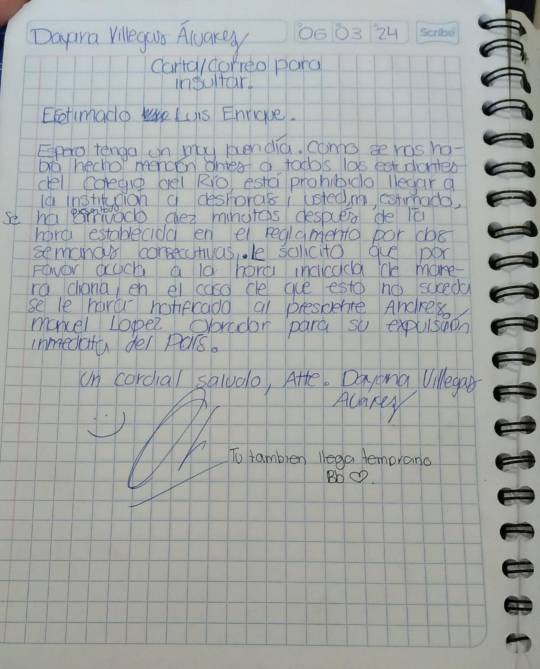 Dayana Villegas Álvarez 06 03 24 Scribe
Carta/Correo para
insultar.
Estimado Luis Enrique.
Espero tenga un muy buen día. Como se nos ha-
bía hecho mención antes a todos los estudiantes
del Colegio del Río, está prohibido llegar a
la institución a deshoras, usted, mi estimado,
se ha arrivado diez minutos después de la
hora establecida en el reglamento por dos
semanas consecutivas. le solicito que por
favor acuda a la hora indicada de mane-
ra diaria, en el caso de que esto no suceda
se le hará notificado al presidente Andres
Manuel Lopez Obrador para su expulsión
inmediata del País.
Un cordial saludo, Atte. Dayana Villegas
Álvarez
:)
Tu tambien llega temprano
Bb ♡.